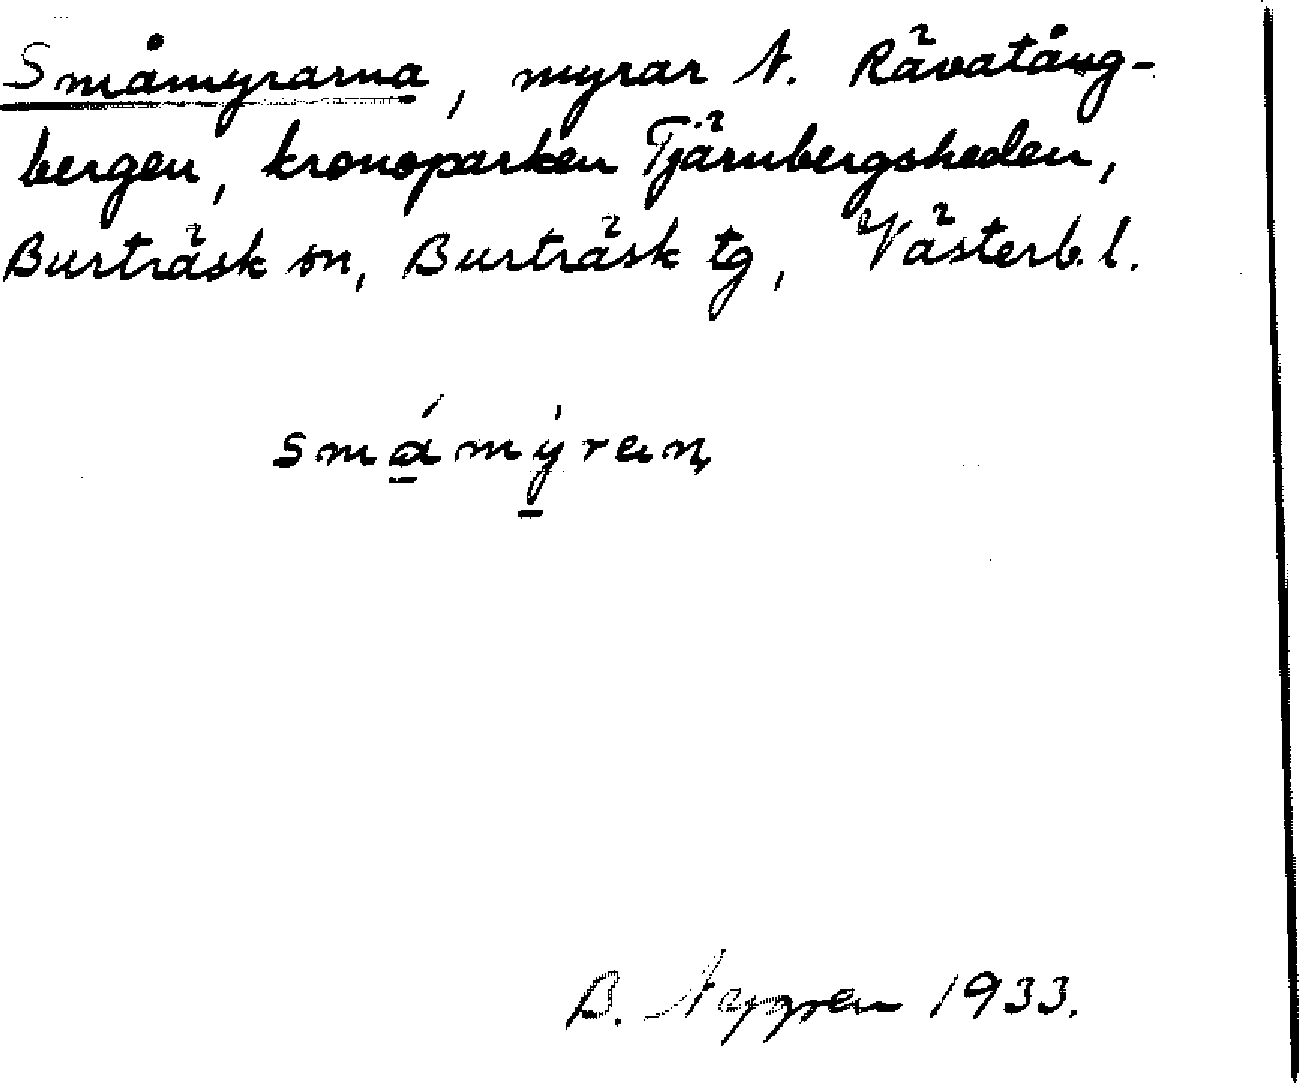 Småmyrarna, myrar N. Rävatång-
bergen, kronoparken Tjärnbergsheden,
Burträsk sn, Burträsk tg, Västerb. l.
småmýran
B. 1933.